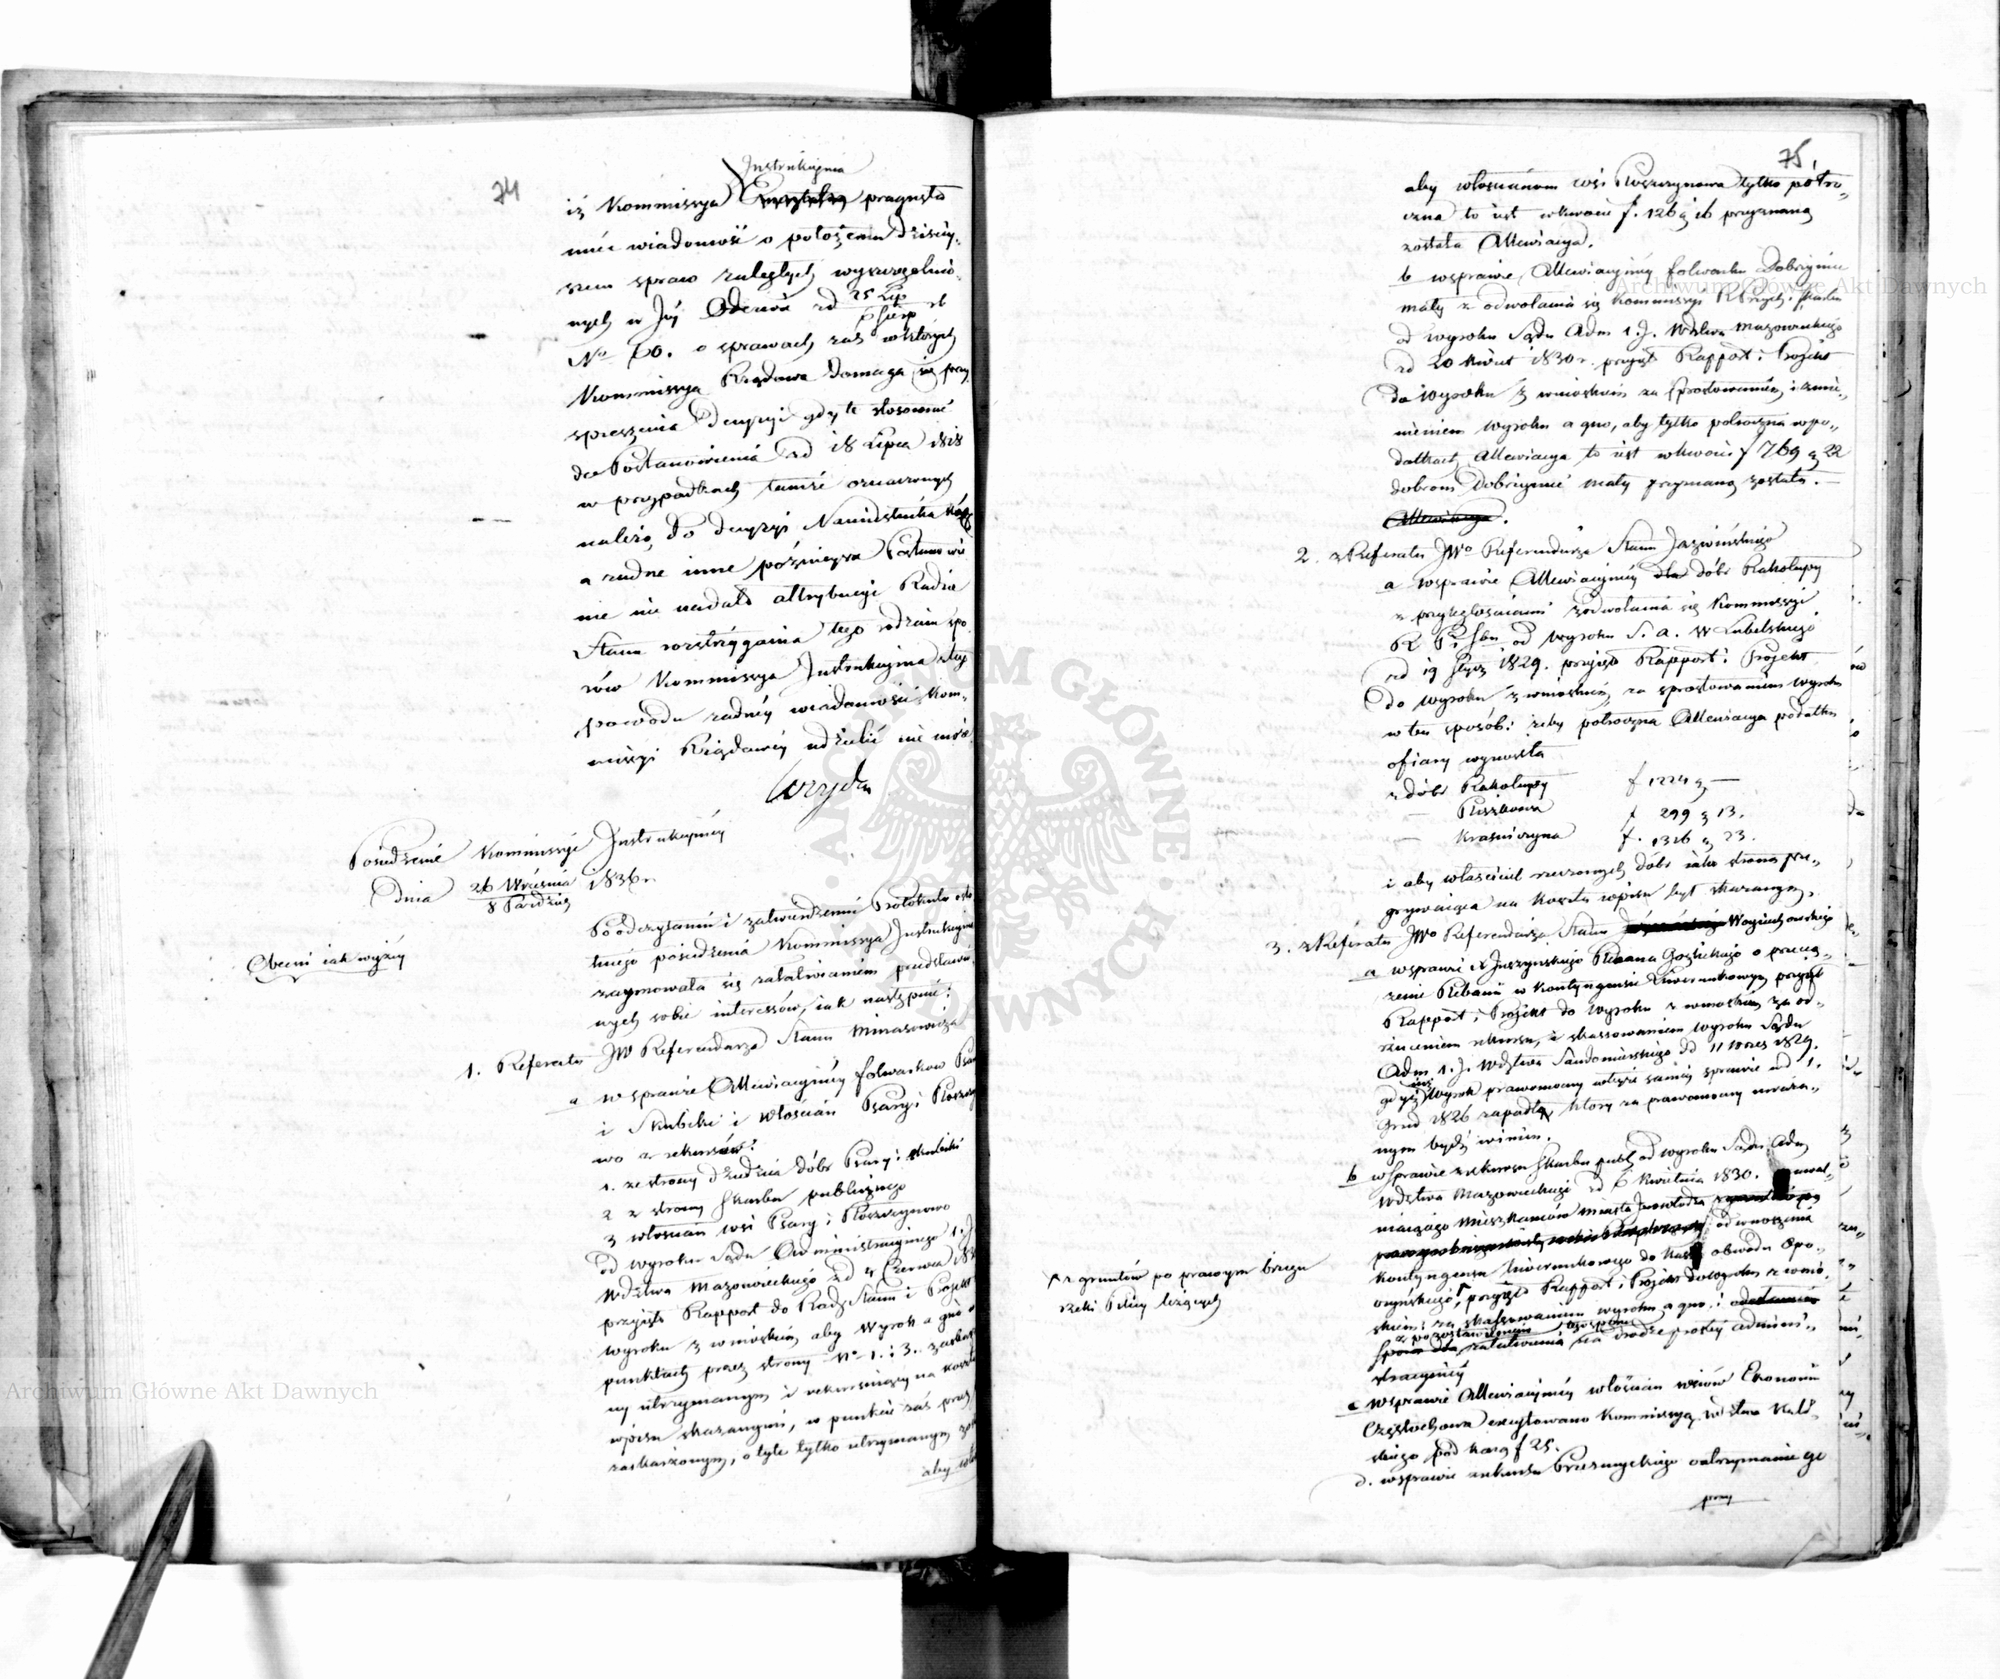 74
Instrukcyjna
iż Kommissya pragnęła
mieć wiadomość o położeniu dzisiey-
szem spraw zaległych wyszczególnio-
nych w Jéj Odezwie od 25 Lip / 6 Sierp rb
No 60. o sprawach zaś w których
Kommissya Rządowa domaga się przy
spieszenia Decyzyi gdy te stosownie
do Postanowienia od 18 Lipca 1818
w przypadkach tamże oznaczonych
należą do decyzyi Namiestnika
a żadne inne późnieysze Postanowie
nie nie nadało attrybucyi Radzie
Stanu rozstrzygania tego rodzaiu spo
rów Kommissya Instrukcyjna
powodu żadnéy wiadomości Kom-
missyi Rządowéy udzielić nie może
Posiedzenie Kommissyi Instrukcyjnéy
Dnia 26 Września / 8 Paździer 1836 r.
Obecni iak wyżéy
Po odczytaniu i zatwierdzeniu Protokułu osta
tniego posiedzenia Kommissya Instrukcyjna
zaymowała się załatwianiem przedstawio
nych sobie interessów, iak następuie:
1. Referatu JW Referendarza Stanu Minasowicza
a w sprawie Allewiacyjnéy folwarków Psary
i Skubiki i włościan Psary i Koszczyno
wo z rekursów:
1. ze strony dziedzica dóbr Psary i Skubiki
2 z strony Skarbu publicznego
3 włościan wsi Psary i Koszczynowo
od wyroku Sądu Administracyjnego 1. J
Wdztwa Mazowieckiego od 4 Czerwca
przyięto Rapport do Rady Stanu i Projekt
wyroku z wnioskiem, aby Wyrok a quo w
punktach przez strony No 1. i 3. zaskarżo
ny utrzymanym i rekursuiący na koszta
wpisu skazanymi, w punkcie zaś przez
zaskarżonym, o tyle tylko utrzymanym
aby
75.
aby włościanom wsi Koszczynowa tylko półro-
czna to iest w kwocie f. 126 g 16 przyznaną
została Allewiacya.
b w sprawie Allewiacyjnéy folwarku Dobrzyniec
mały z odwołania się Kommissyi R Przych: i Skarbu
od wyroku Sądu Adm 1. J. Wdztwa Mazowieckiego
od 20 Kwiet 1830 r. przyięto Rapport i Projekt
do Wyroku z wnioskiem za sprostowaniem i zmie-
nieniem wyroku a quo, aby tylko półroczna w po-
datkach Allewiacya to iest w kwocie f 769 g 22
dobrom Dobrzyniec mały przyznaną została. —
Allewiacya.
2. z Referatu JWo Referendarza Stanu Jaźwińskiego
a w sprawie Allewiacyjnéy dla dóbr Rakołupy
z przyległościami z odwołania się Kommissyi
R P i Skar od wyroku S. a. W Lubelskiego
od 19 Stycz 1829. przyięto Rapport i Projekt
do wyroku z wnioskiem za sprostowaniem wyroku
w ten sposób: żeby półroczna Allewiacya podatku
ofiary wynosiła
z dóbr Rakołupy f 1224 g —
f 299 g 13.
— Kraśniczyna f. 1316 g 23.
i aby właściciel rzeczonych dóbr iako strona prze-
grywaiąca na koszta wpisu był skazanym.
3. z Referatu JWo Referendarza Stanu Woyciechowskiego
a w sprawie X Juszyńskiego Plebana Gozlickiego o
Plebanii w kontyngensie Liwerunkowym przyięt
Rapport i Projekt do Wyroku z wnioskiem za od-
rzuceniem rekursu, i skassowaniem wyroku Sądu
Adm 1. J. Wdztwa Sandomierskiego od 11 Wrześ 1829.
gdyż iuż Wyrok prawomocny w téyże saméy sprawie od 1.
Grud 1826 zapadł, który za prawomocny uważa-
nym bydź winien.
b w sprawie z rekursu Skarbu publ od wyroku Sądu Adm
Wdztwa Mazowieckiego od 6 Kwietnia 1830. uwal-
niaiącego Mieszkańców miasta
od wnoszenia
kontyngensu liwerunkowego do Kassy obwodu Opo-
czyńskiego, przyięto Rapport i Projekt do Wyroku z wnio-
skiem: za skassowaniem wyroku a quo: i
z pozostawieniem
załatwienia na drodze prostéy admini-
stracyjnéy
× z gruntów po prawym brzegu
rzeki Pilicy leżących
c w sprawie Allewiacyjnéy włościan wsiów Ekonomii
Częstochowa excytowano Kommissyą Wdztwa Kali-
skiego pod karą f 25.
d. w sprawie rekursu Przesmyckiego o utrzymanie go
przy
Archiwum Główne Akt Dawnych
Archiwum Główne Akt Dawnych
ARCHIWUM GŁÓWNE AKT DAWNYCH